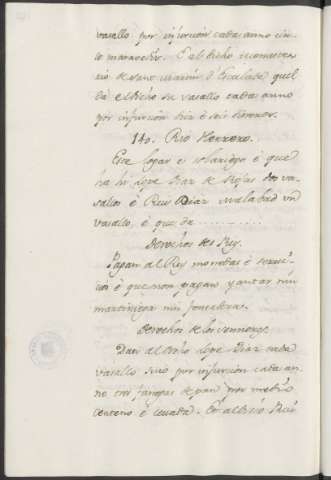 vasallo por infurcion cada anno cin-
co maravedis. E al dicho
de Sant Martin d Escalada quel
da el dicho su vasallo cada anno
por infurcion diez è seis dineros.
140. Rio Herrero.
Este logar è solariego è que
ha hi Lope Diaz de Rojas dos va-
sallos è Rui Diaz Malabad un
vasallo, è que da
Derechos del Rey.
Pagan al Rey monedas è servi-
cios è que non pagan yantar nin
martiniega nin fonsadera.
Derechos de los sennores.
Dan al dicho Lope Diaz cada
vasallo suio por infurcion cada an-
no tres fanegas de pan por medio
centeno è cevada. E al dicho Rui